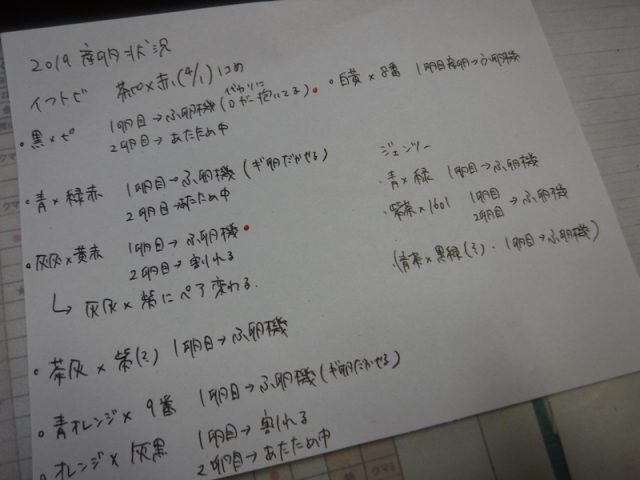 2019 産卵状況
イワトビ 茶ピ×赤(4/1)
・黒×ピ 1卵目→ふ卵機(代わりに
2卵目→あたため中
・青×緑赤 1卵目→ふ卵機(ギ卵だかせる)
2卵目→あたため中
・灰灰×黄赤 1卵目→ふ卵機
2卵目→割れる
↳ 灰灰×紫にペア変わる
・茶灰×紫(2) 1卵目→ふ卵機
・青オレンジ×9番 1卵目→ふ卵機(ギ卵だかせる)
・オレンジ×灰黒 1卵目→割れる
2卵目→あたため中
・白黄×8番 1卵目産卵→ふ卵機
ジェンツー
・青×緑 1卵目→ふ卵機
・紫茶×1601 1卵目
2卵目→ふ卵機
・(青茶×黒緑(3)・1卵目→ふ卵機)